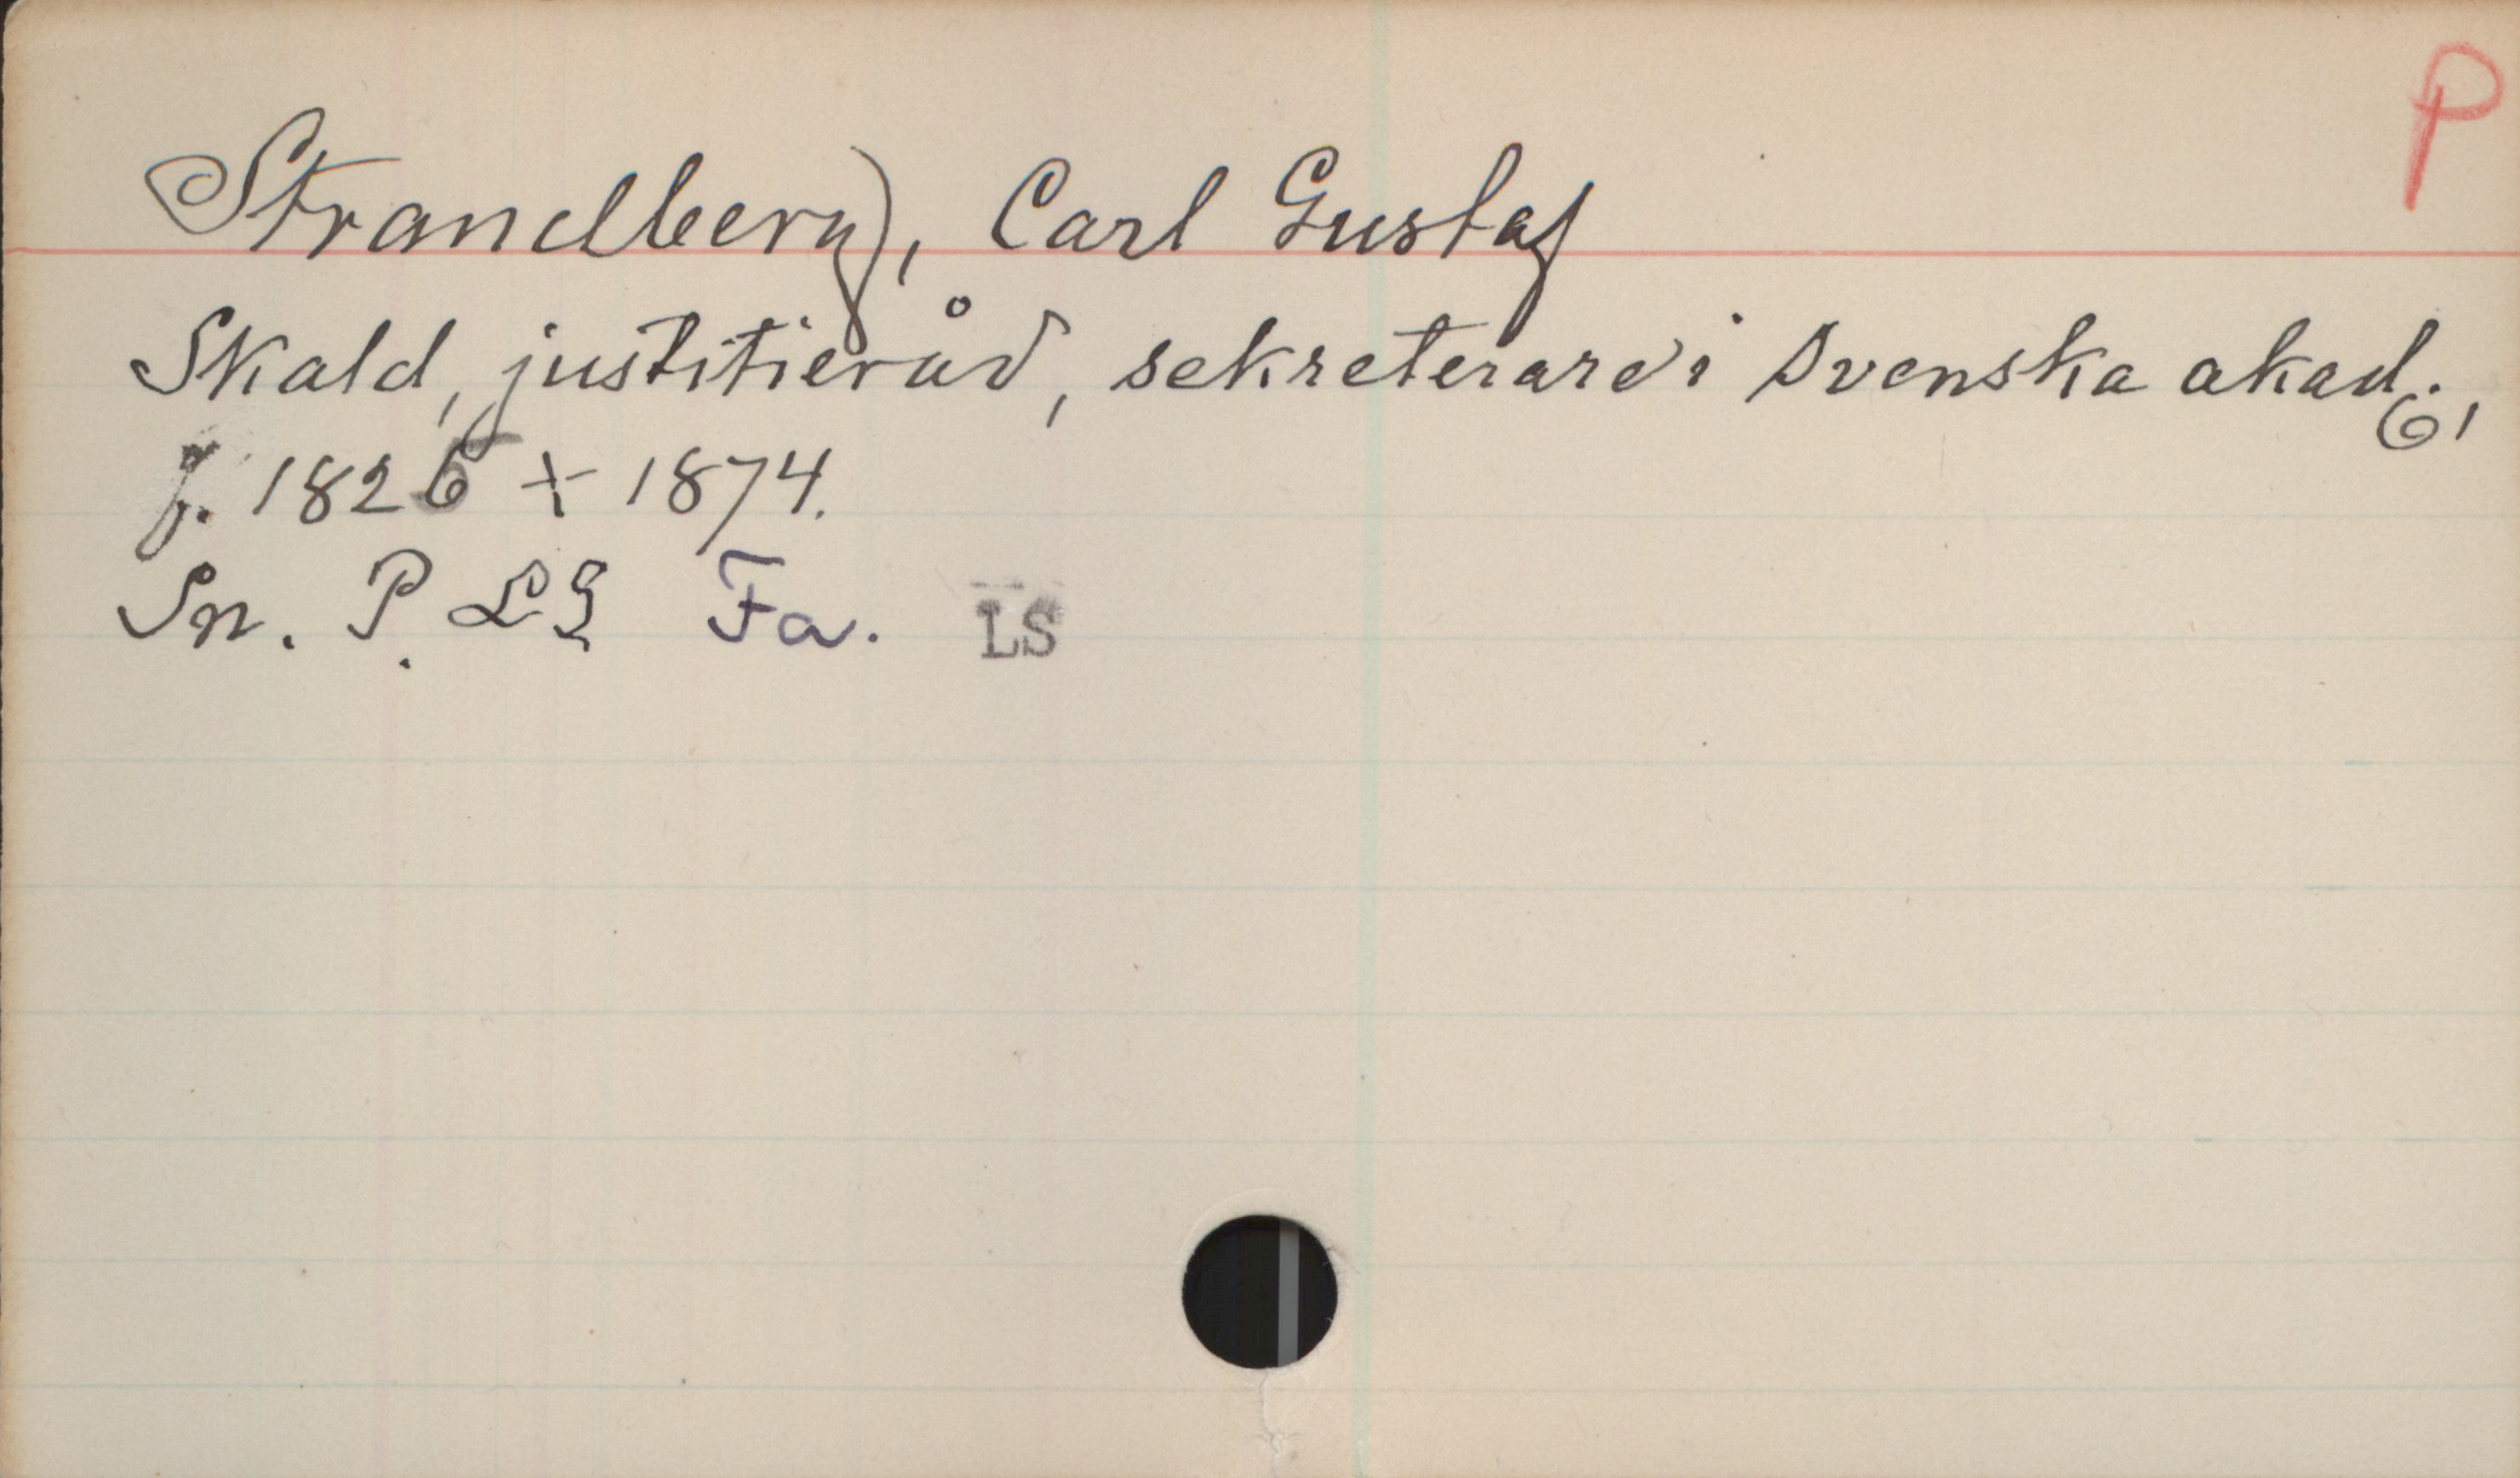 P
Strandberg, Carl Gustaf
Skald, justitieråd, sekreterare i Svenska akad.,
f. 1825 + 1874.
Sn. P. LG Fa. LS